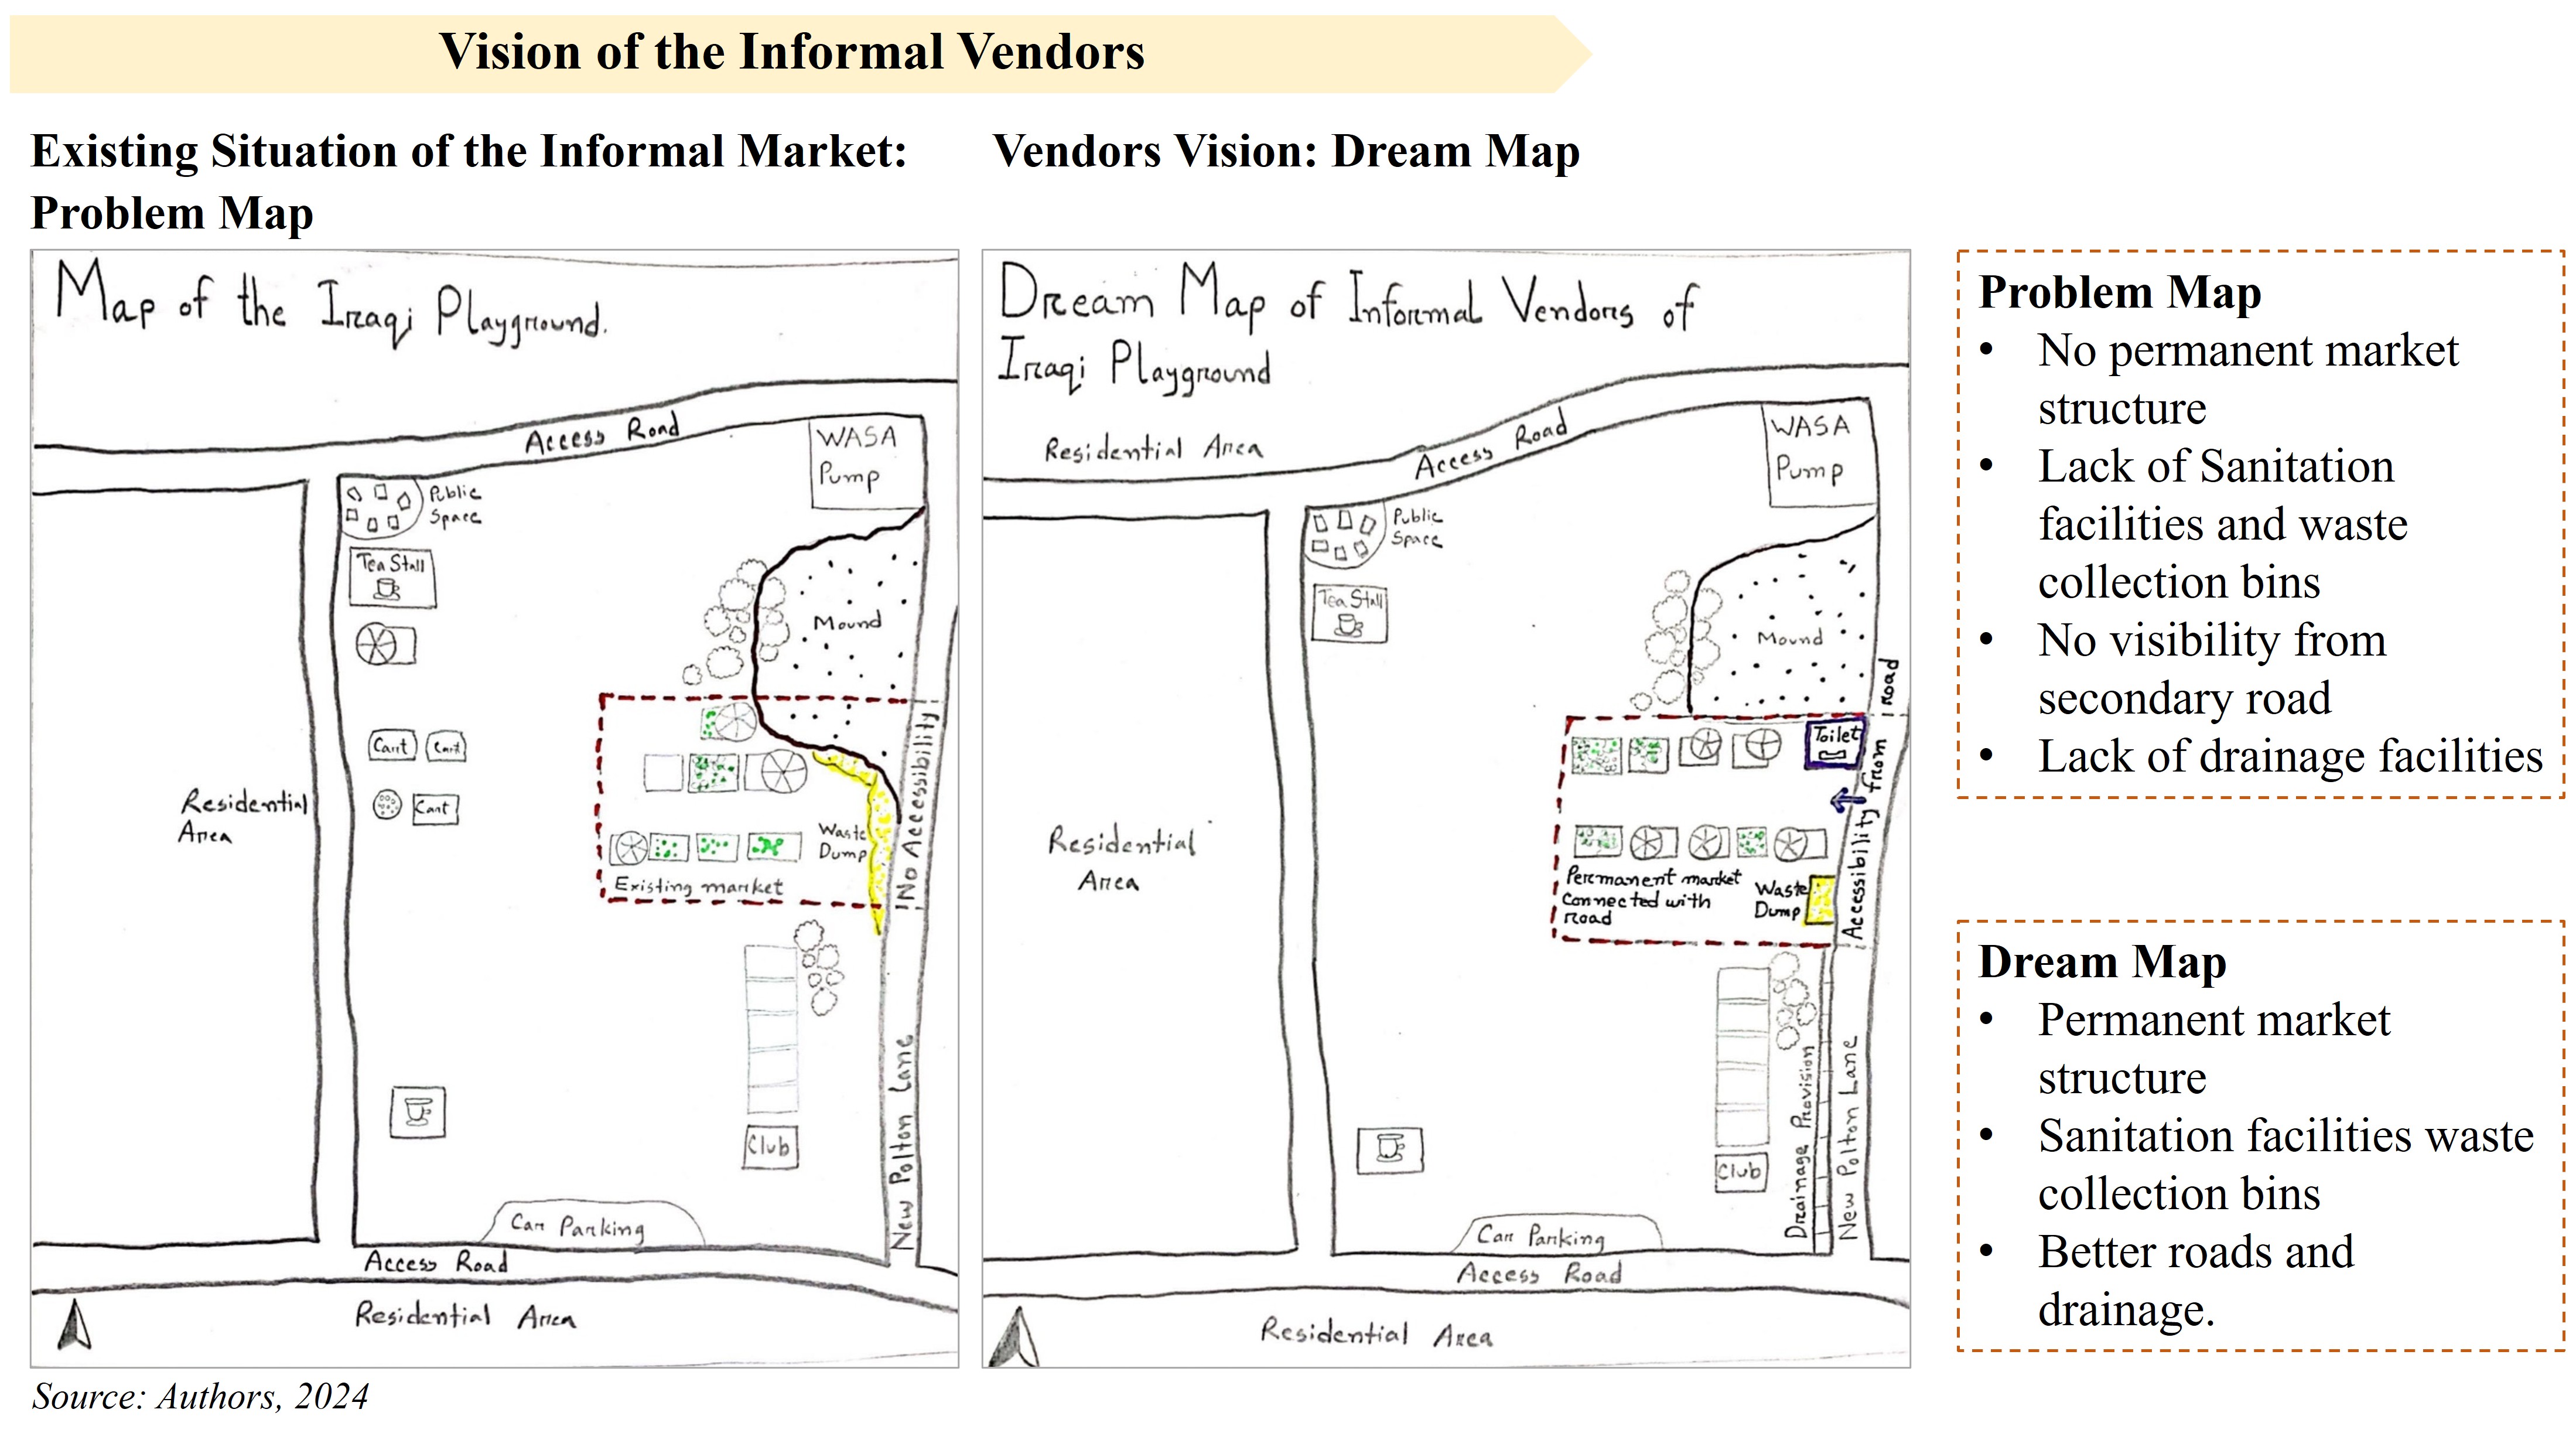 Vision of the Informal Vendors
Existing Situation of the Informal Market:
Problem Map
Map of the Iraqi Playground.
Access Road
WASA
Pump
Public
Space
Tea Stall
Mound
Cart
Cart
Cart
Residential
Area
No Accessibility
Waste
Dump
Existing market
New Polton Lane
Club
Car Parking
Access Road
Residential Area
Source: Authors, 2024
Vendors Vision: Dream Map
Dream Map of Informal Vendors of
Iraqi Playground
Residential Area
Access Road
WASA
Pump
Public
Space
Tea Stall
Mound
Toilet
Accessibility from road
Residential
Area
Permanent market
Connected with
road
Waste
Dump
Drainage Provision
New Polton Lane
Club
Car Parking
Access Road
Residential Area
Problem Map
• No permanent market
structure
• Lack of Sanitation
facilities and waste
collection bins
• No visibility from
secondary road
• Lack of drainage facilities
Dream Map
• Permanent market
structure
• Sanitation facilities waste
collection bins
• Better roads and
drainage.